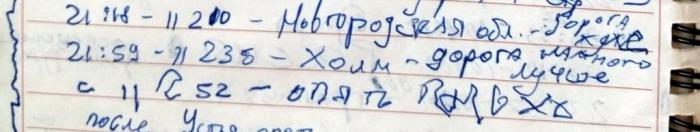 21:48 - 11 210 - Новгородская обл. - дорога хуже
21:59 - 11 235 - Холм - дорога много лучше
с 11 252 - опять
после Устья опять